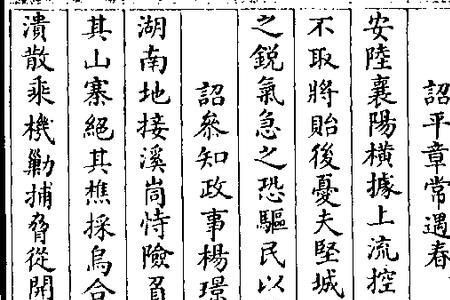 詔平章常遇春
安陸襄陽橫據上流控
不取將貽後憂夫堅城
之銳氣急之恐驅民以
詔參知政事楊璟
湖南地接溪峝恃險負
其山寨絕其樵採烏合
潰散乘機勦捕脅從開